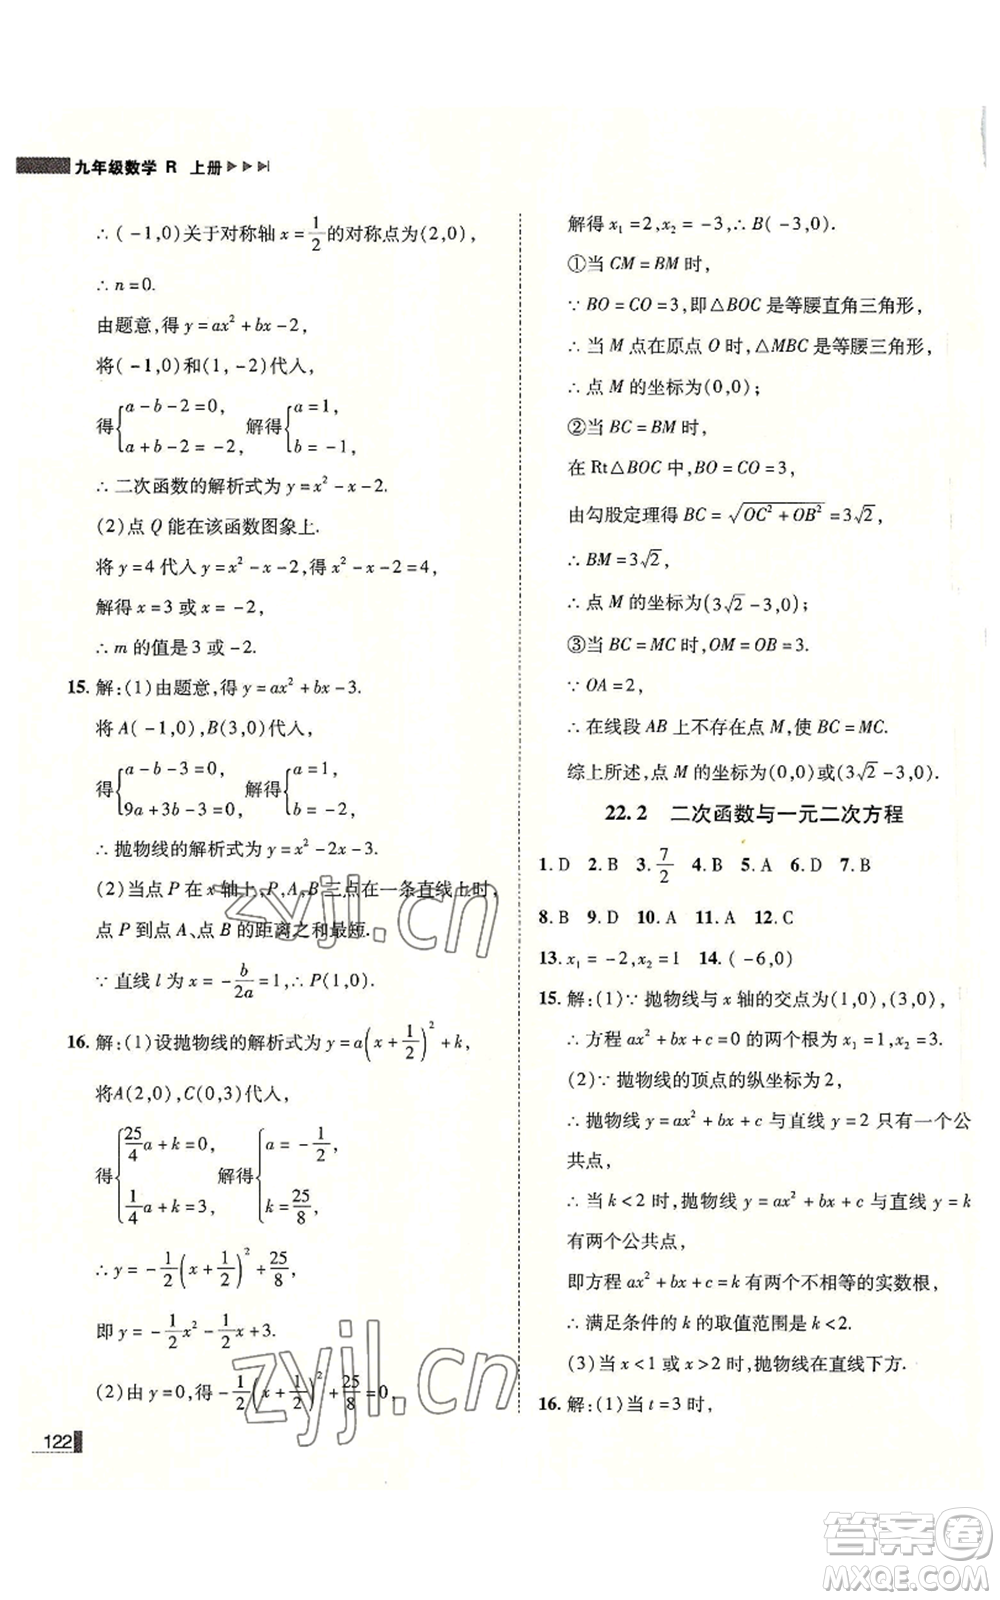 九年级数学 R 上册
∴(-1,0)关于对称轴 x=1/2 的对称点为(2,0),
∴ n=0.
由题意,得 y=ax²+bx-2,
将(-1,0)和(1,-2)代入,
得{a-b-2=0, a+b-2=-2, 解得{a=1, b=-1,
∴ 二次函数的解析式为 y=x²-x-2.
(2)点 Q 能在该函数图象上.
将 y=4 代入 y=x²-x-2,得 x²-x-2=4,
解得 x=3 或 x=-2,
∴ m 的值是 3 或-2.
15. 解:(1)由题意,得 y=ax²+bx-3.
将 A(-1,0),B(3,0)代入,
得{a-b-3=0, 9a+3b-3=0, 解得{a=1, b=-2,
∴ 抛物线的解析式为 y=x²-2x-3.
(2)当点 P 在 x 轴上,P,A,B 三点在一条直线上时,
点 P 到点 A、点 B 的距离之和最短.
∵ 直线 l 为 x=-b/2a=1,∴ P(1,0).
16. 解:(1)设抛物线的解析式为 y=a(x+1/2)²+k,
将A(2,0),C(0,3)代入,
得{25/4a+k=0, 1/4a+k=3, 解得{a=-1/2, k=25/8,
∴ y=-1/2(x+1/2)²+25/8,
即 y=-1/2x²-1/2x+3.
(2)由 y=0,得-1/2(x+1/2)²+25/8=0,
122
解得 x₁=2,x₂=-3,∴ B(-3,0).
①当 CM=BM 时,
∵ BO=CO=3,即△BOC 是等腰直角三角形,
∴ 当 M 点在原点 O 时,△MBC 是等腰三角形,
∴ 点 M 的坐标为(0,0);
②当 BC=BM 时,
在 Rt△BOC 中,BO=CO=3,
由勾股定理得 BC=√(OC²+OB²)=3√2,
∴ BM=3√2,
∴ 点 M 的坐标为(3√2-3,0);
③当 BC=MC 时,OM=OB=3.
∵ OA=2,
∴ 在线段 AB 上不存在点 M,使 BC=MC.
综上所述,点 M 的坐标为(0,0)或(3√2-3,0).
22.2 二次函数与一元二次方程
1. D 2. B 3. 7/2 4. B 5. A 6. D 7. B
8. B 9. D 10. A 11. A 12. C
13. x₁=-2,x₂=1 14. (-6,0)
15. 解:(1)∵ 抛物线与 x 轴的交点为(1,0),(3,0),
∴ 方程 ax²+bx+c=0 的两个根为 x₁=1,x₂=3.
(2)∵ 抛物线的顶点的纵坐标为 2,
∴ 抛物线 y=ax²+bx+c 与直线 y=2 只有一个公
共点,
∴ 当 k<2 时,抛物线 y=ax²+bx+c 与直线 y=k
有两个公共点,
即方程 ax²+bx+c=k 有两个不相等的实数根,
∴ 满足条件的 k 的取值范围是 k<2.
(3)当 x<1 或 x>2 时,抛物线在直线下方.
16. 解:(1)当 t=3 时,
zyjl.cn
zyjl.cn
答案圈
MXQE.COM